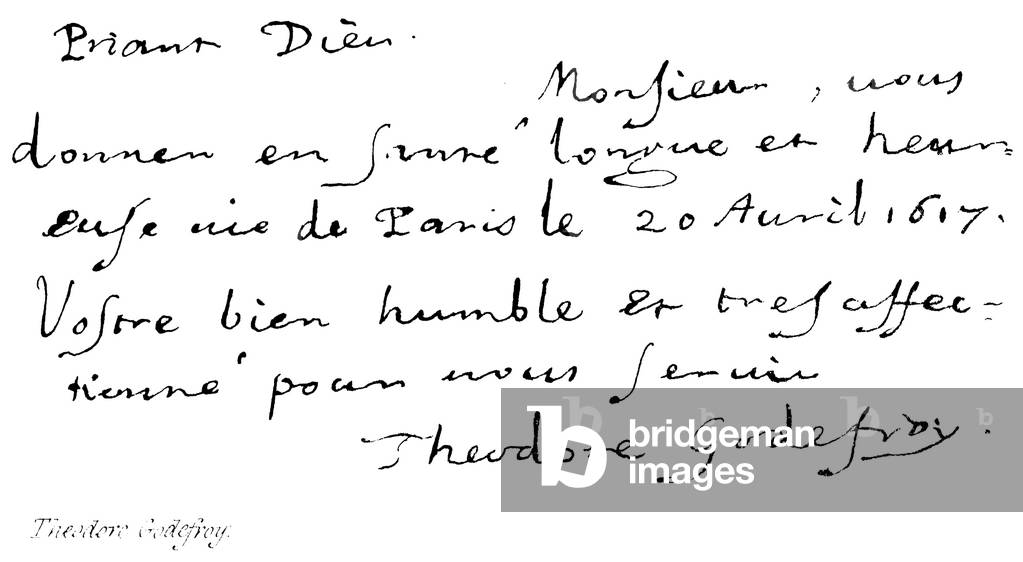 Priant Dieu.
Monsieur, vous
donner en santé longue et heur=
euse vie de Paris le 20 Auril 1617.
Vostre bien humble et tres affec-
tionné pour vous seruir
Theodore Godefroy.
bridgeman
images
Theodore Godefroy.